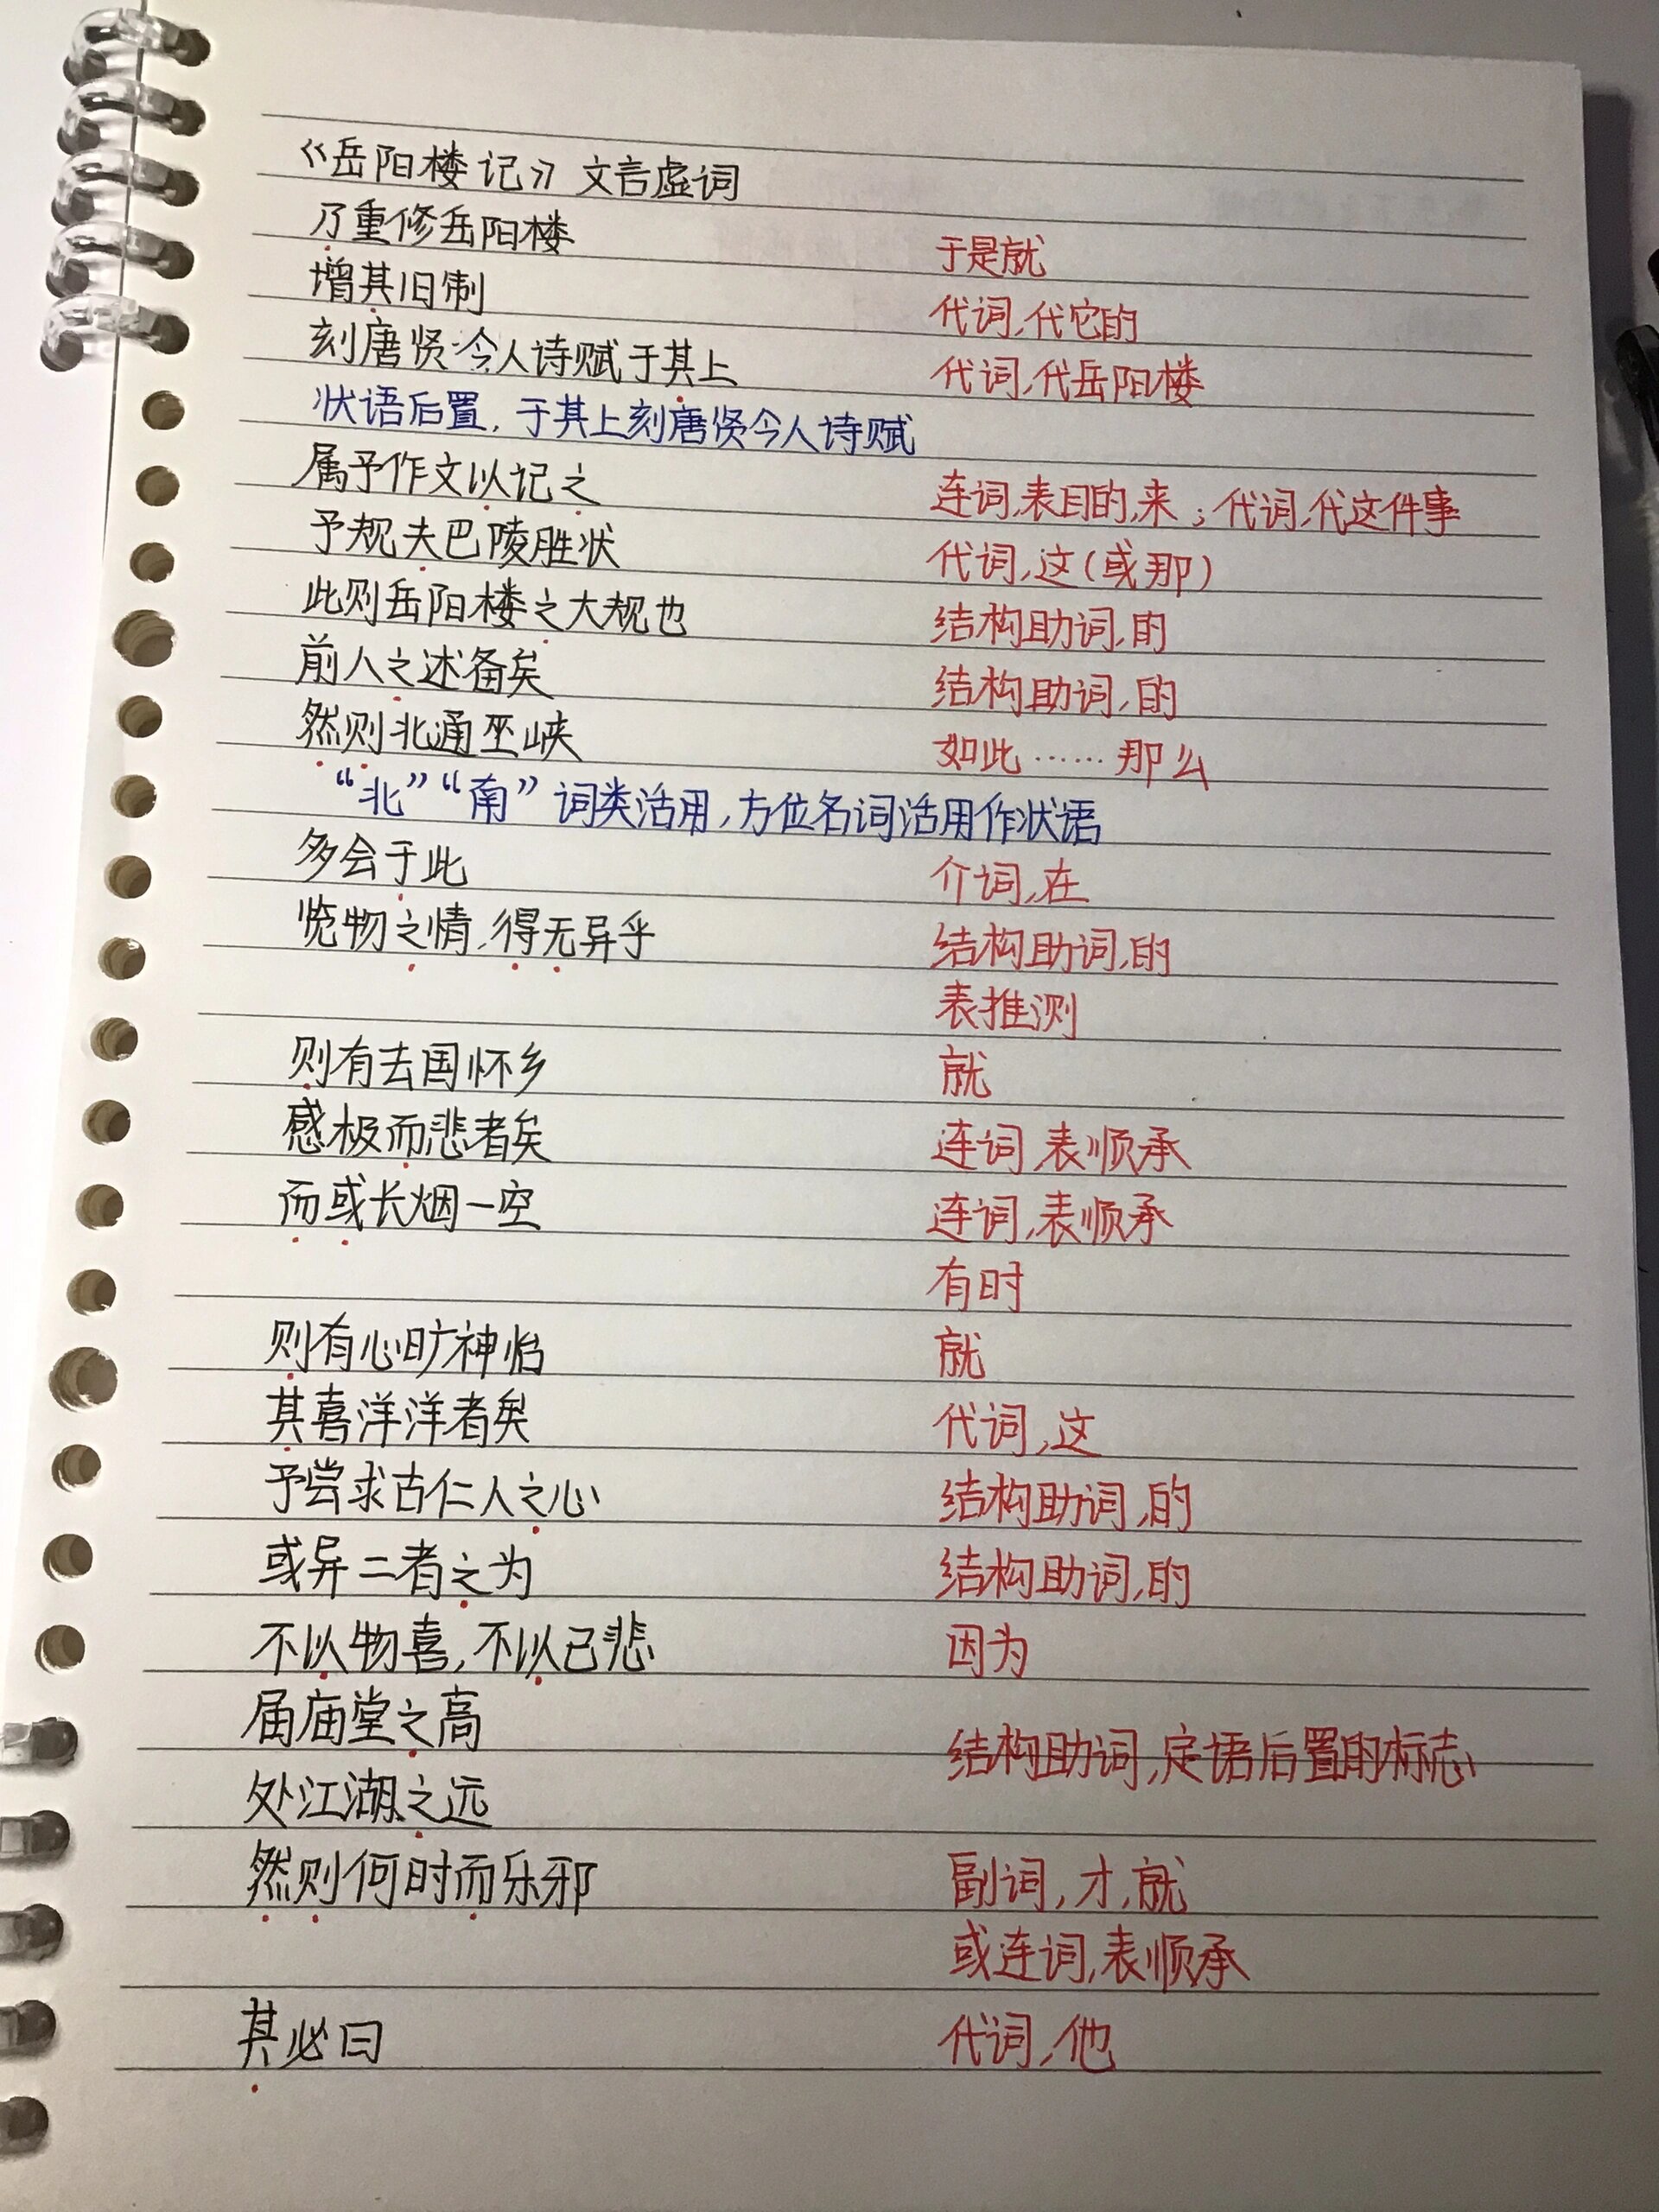 《岳阳楼记》文言虚词
乃重修岳阳楼 于是就
增其旧制 代词,代它的
刻唐贤今人诗赋于其上 代词,代岳阳楼
状语后置,于其上刻唐贤今人诗赋
属予作文以记之 连词,表目的,来;代词,代这件事
予观夫巴陵胜状 代词,这(或那)
此则岳阳楼之大观也 结构助词,的
前人之述备矣 结构助词,的
然则北通巫峡 如此……那么
“北”“南”词类活用,方位名词活用作状语
多会于此 介词,在
览物之情,得无异乎 结构助词,的
表推测
则有去国怀乡 就
感极而悲者矣 连词,表顺承
而或长烟一空 连词,表顺承
有时
则有心旷神怡 就
其喜洋洋者矣 代词,这
予尝求古仁人之心 结构助词,的
或异二者之为 结构助词,的
不以物喜,不以己悲 因为
居庙堂之高 结构助词,定语后置的标志
处江湖之远
然则何时而乐邪 副词,才,就
或连词,表顺承
其必曰 代词,他